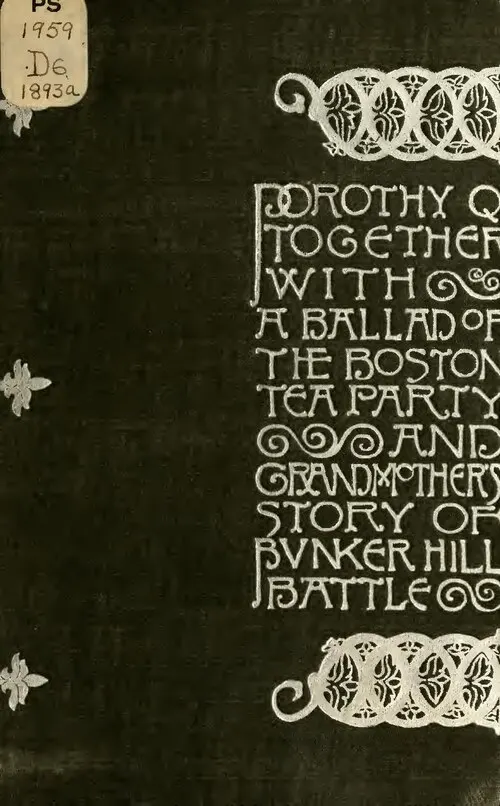 PS
1959
.D6
1893a
DOROTHY Q
TOGETHER
WITH
A BALLAD OF
THE BOSTON
TEA PARTY
AND
GRANDMOTHER'S
STORY OF
BVNKER HILL
BATTLE